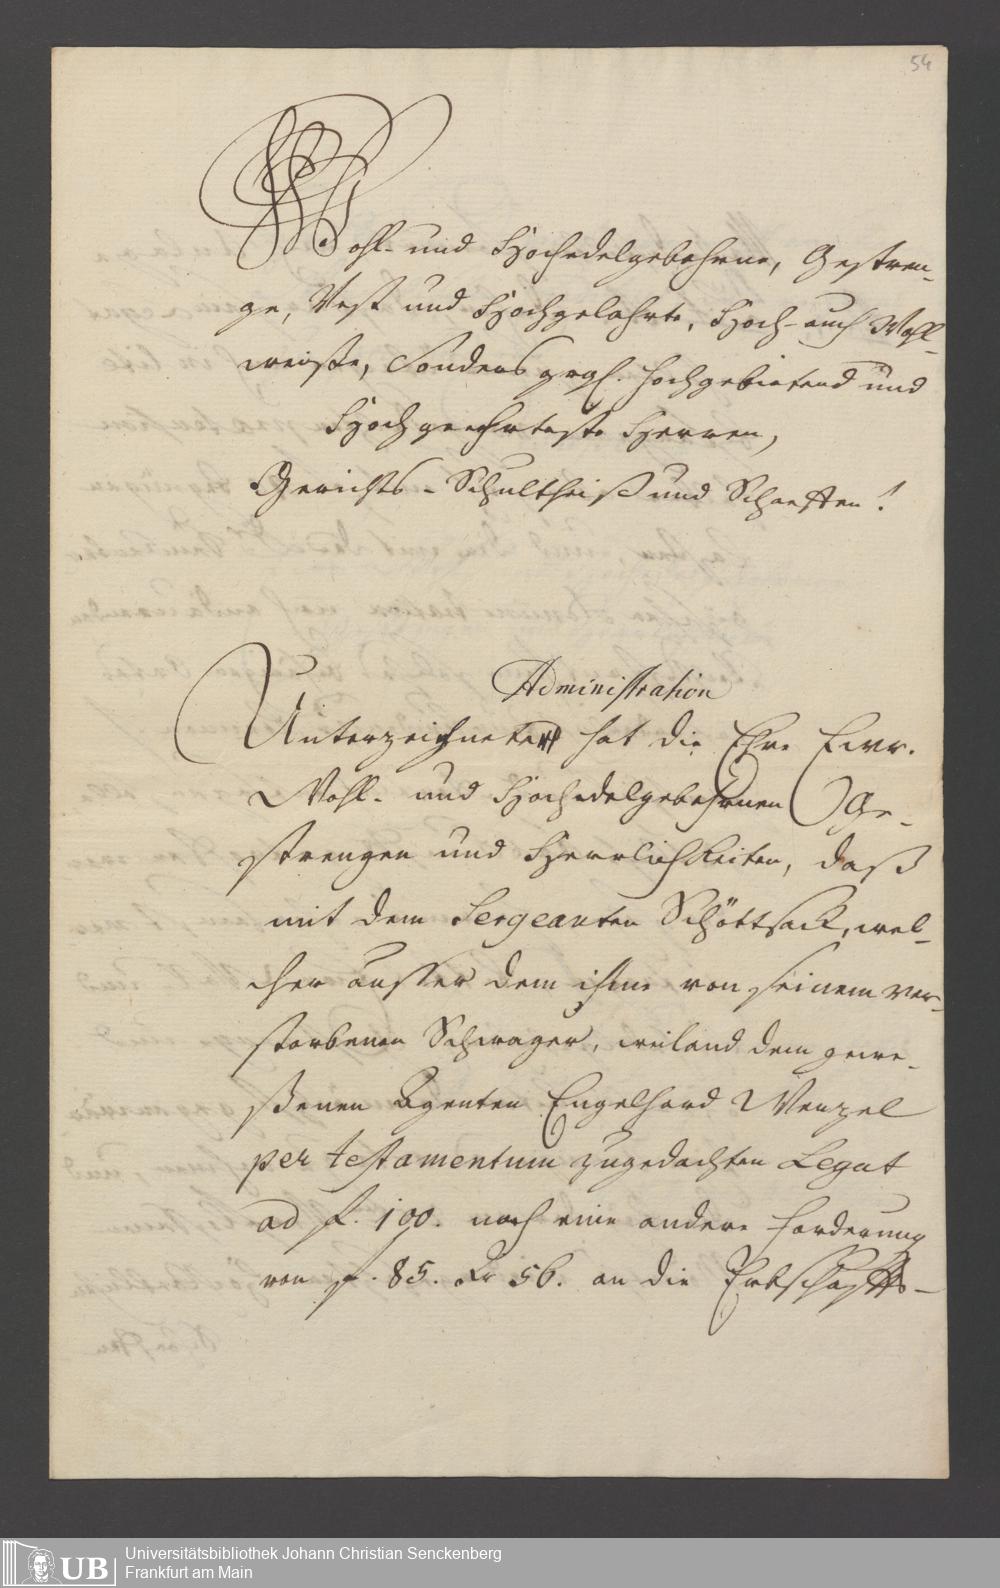 54
Wohl- und Hochedelgebohrne, Gestren-
ge, Vest und Hochgelahrte, Hoch- auch Wohl-
weiße, Sonders grgl. Hochgebietend und
Hochgeehrteste Herren,
Gerichts-Schultheiß und Schoeffen!
Administration
Unterzeichnete hat die Ehre Ewr.
Wohl- und Hochedelgebohrnen Ge-
strengen und Herrlichkeiten, daß
mit dem Sergeanten Schöttsack, wel-
cher ausser dem ihme von seinem ver-
storbenen Schwager, weiland dem gewe-
ßenen Agenten Engelhard Wenzel
per testamentum zugedachten Legat
ad f. 100. noch eine andere Forderung
von f. 85. Kr 56. an die Erbschaffts-
UB
Universitätsbibliothek Johann Christian Senckenberg
Frankfurt am Main